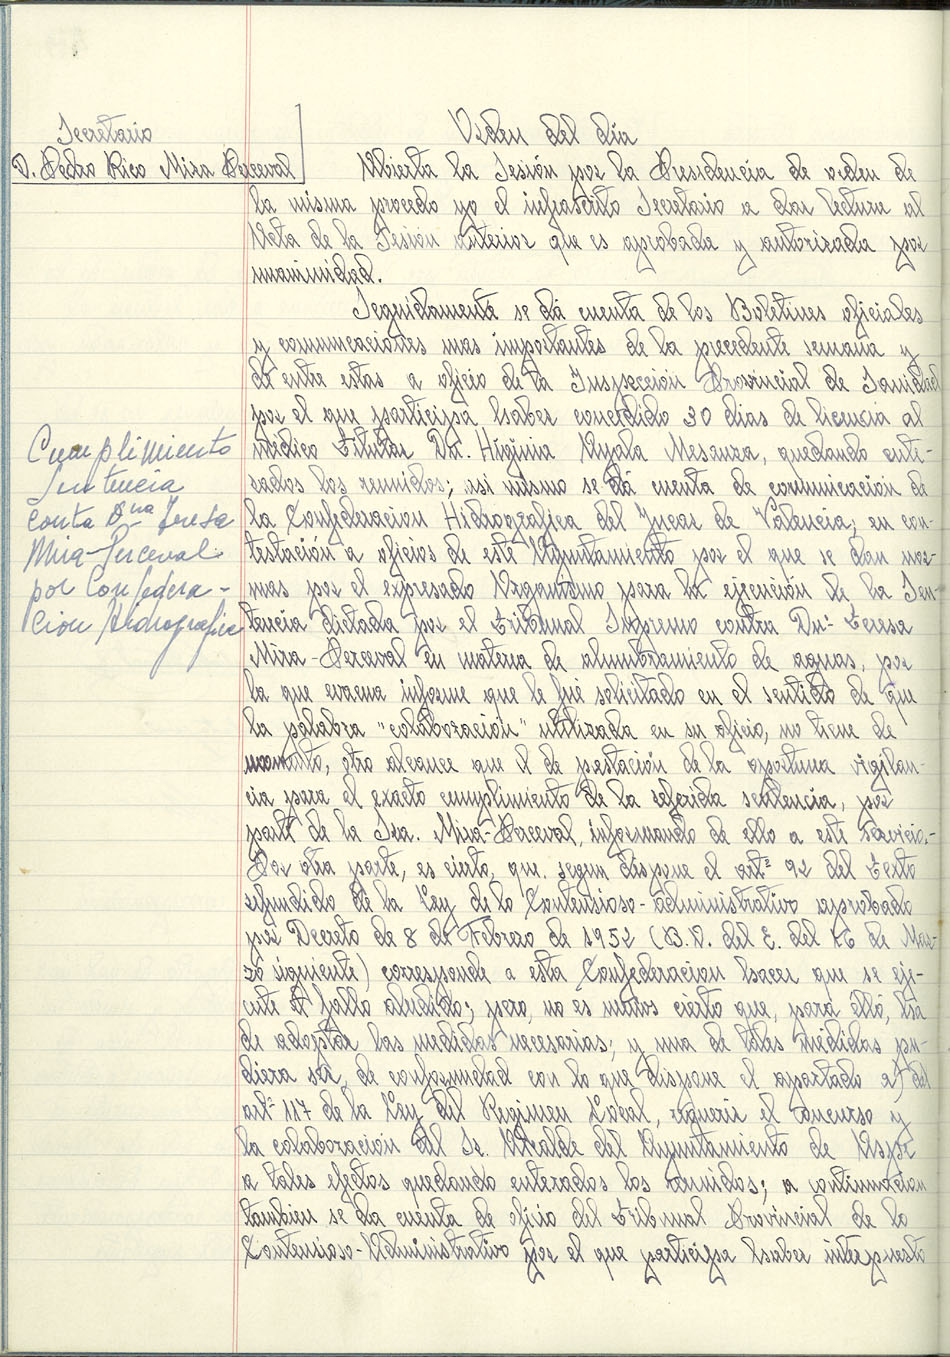 Secretario
D. Pedro Rico Mira Perceval
Orden del día
Abierta la Sesión por la Presidencia de orden de
la misma procedo yo el infrascrito Secretario a dar lectura al
Acta de la Sesión anterior que es aprobada y autorizada por
unanimidad.
Seguidamente se dá cuenta de los Boletines oficiales
y comunicaciones mas importantes de la precedente semana y
de entre estas a oficio de la Inspección Provincial de Sanidad
por el que participa haber concedido 30 dias de licencia al
médico titular Dn. Higinia Ayala Mesanza, quedando ente-
rados los reunidos; asi mismo se dá cuenta de comunicación de
la Confederacion Hidrográfica del Jucar de Valencia, en con-
testación a oficios de este Ayuntamiento por el que se dan nor-
mas por el expresado Organismo para la ejecución de la Sen-
tencia dictada por el Tribunal Supremo contra Dnª Teresa
Mira-Perceval en materia de alumbramiento de aguas, por
la que evacua informe que le fué solicitado en el sentido de que
la palabra "colaboración" utilizada en su oficio, no tiene de
momento, otro alcance que el de prestación de la oportuna vigilan-
cia para el exacto cumplimiento de la referida sentencia, por
parte de la Sra. Mira-Perceval, informando de ello a este Servicio.-
Por otra parte, es cierto, que segun dispone el artº 92 del Texto
refundido de la Ley de lo Contensioso-administrativo aprobado
por Decreto de 8 de Febrero de 1952 (B.O. del E. del 16 de Mar-
zo siguiente) corresponde a esta Confederacion hacer que se eje-
cute el fallo aludido; pero, no es menos cierto que, para ello, ha
de adoptar las medidas necesarias; y una de tales medidas pu-
diera ser, de conformidad con lo que dispone el apartado a) del
artº 117 de la Ley del Regimen Local, requerir el concurso y
la colaboración del Sr. Alcalde del Ayuntamiento de Aspe
a tales efectos quedando enterados los reunidos; a continuacion
tambien se da cuenta de oficio del Tribunal Provincial de lo
Contensioso-Administrativo por el que participa haber interpuesto
Cumplimiento
Sentencia
conta Dña Teresa
Mira-Perceval
por Confedera-
cion Hidrografica